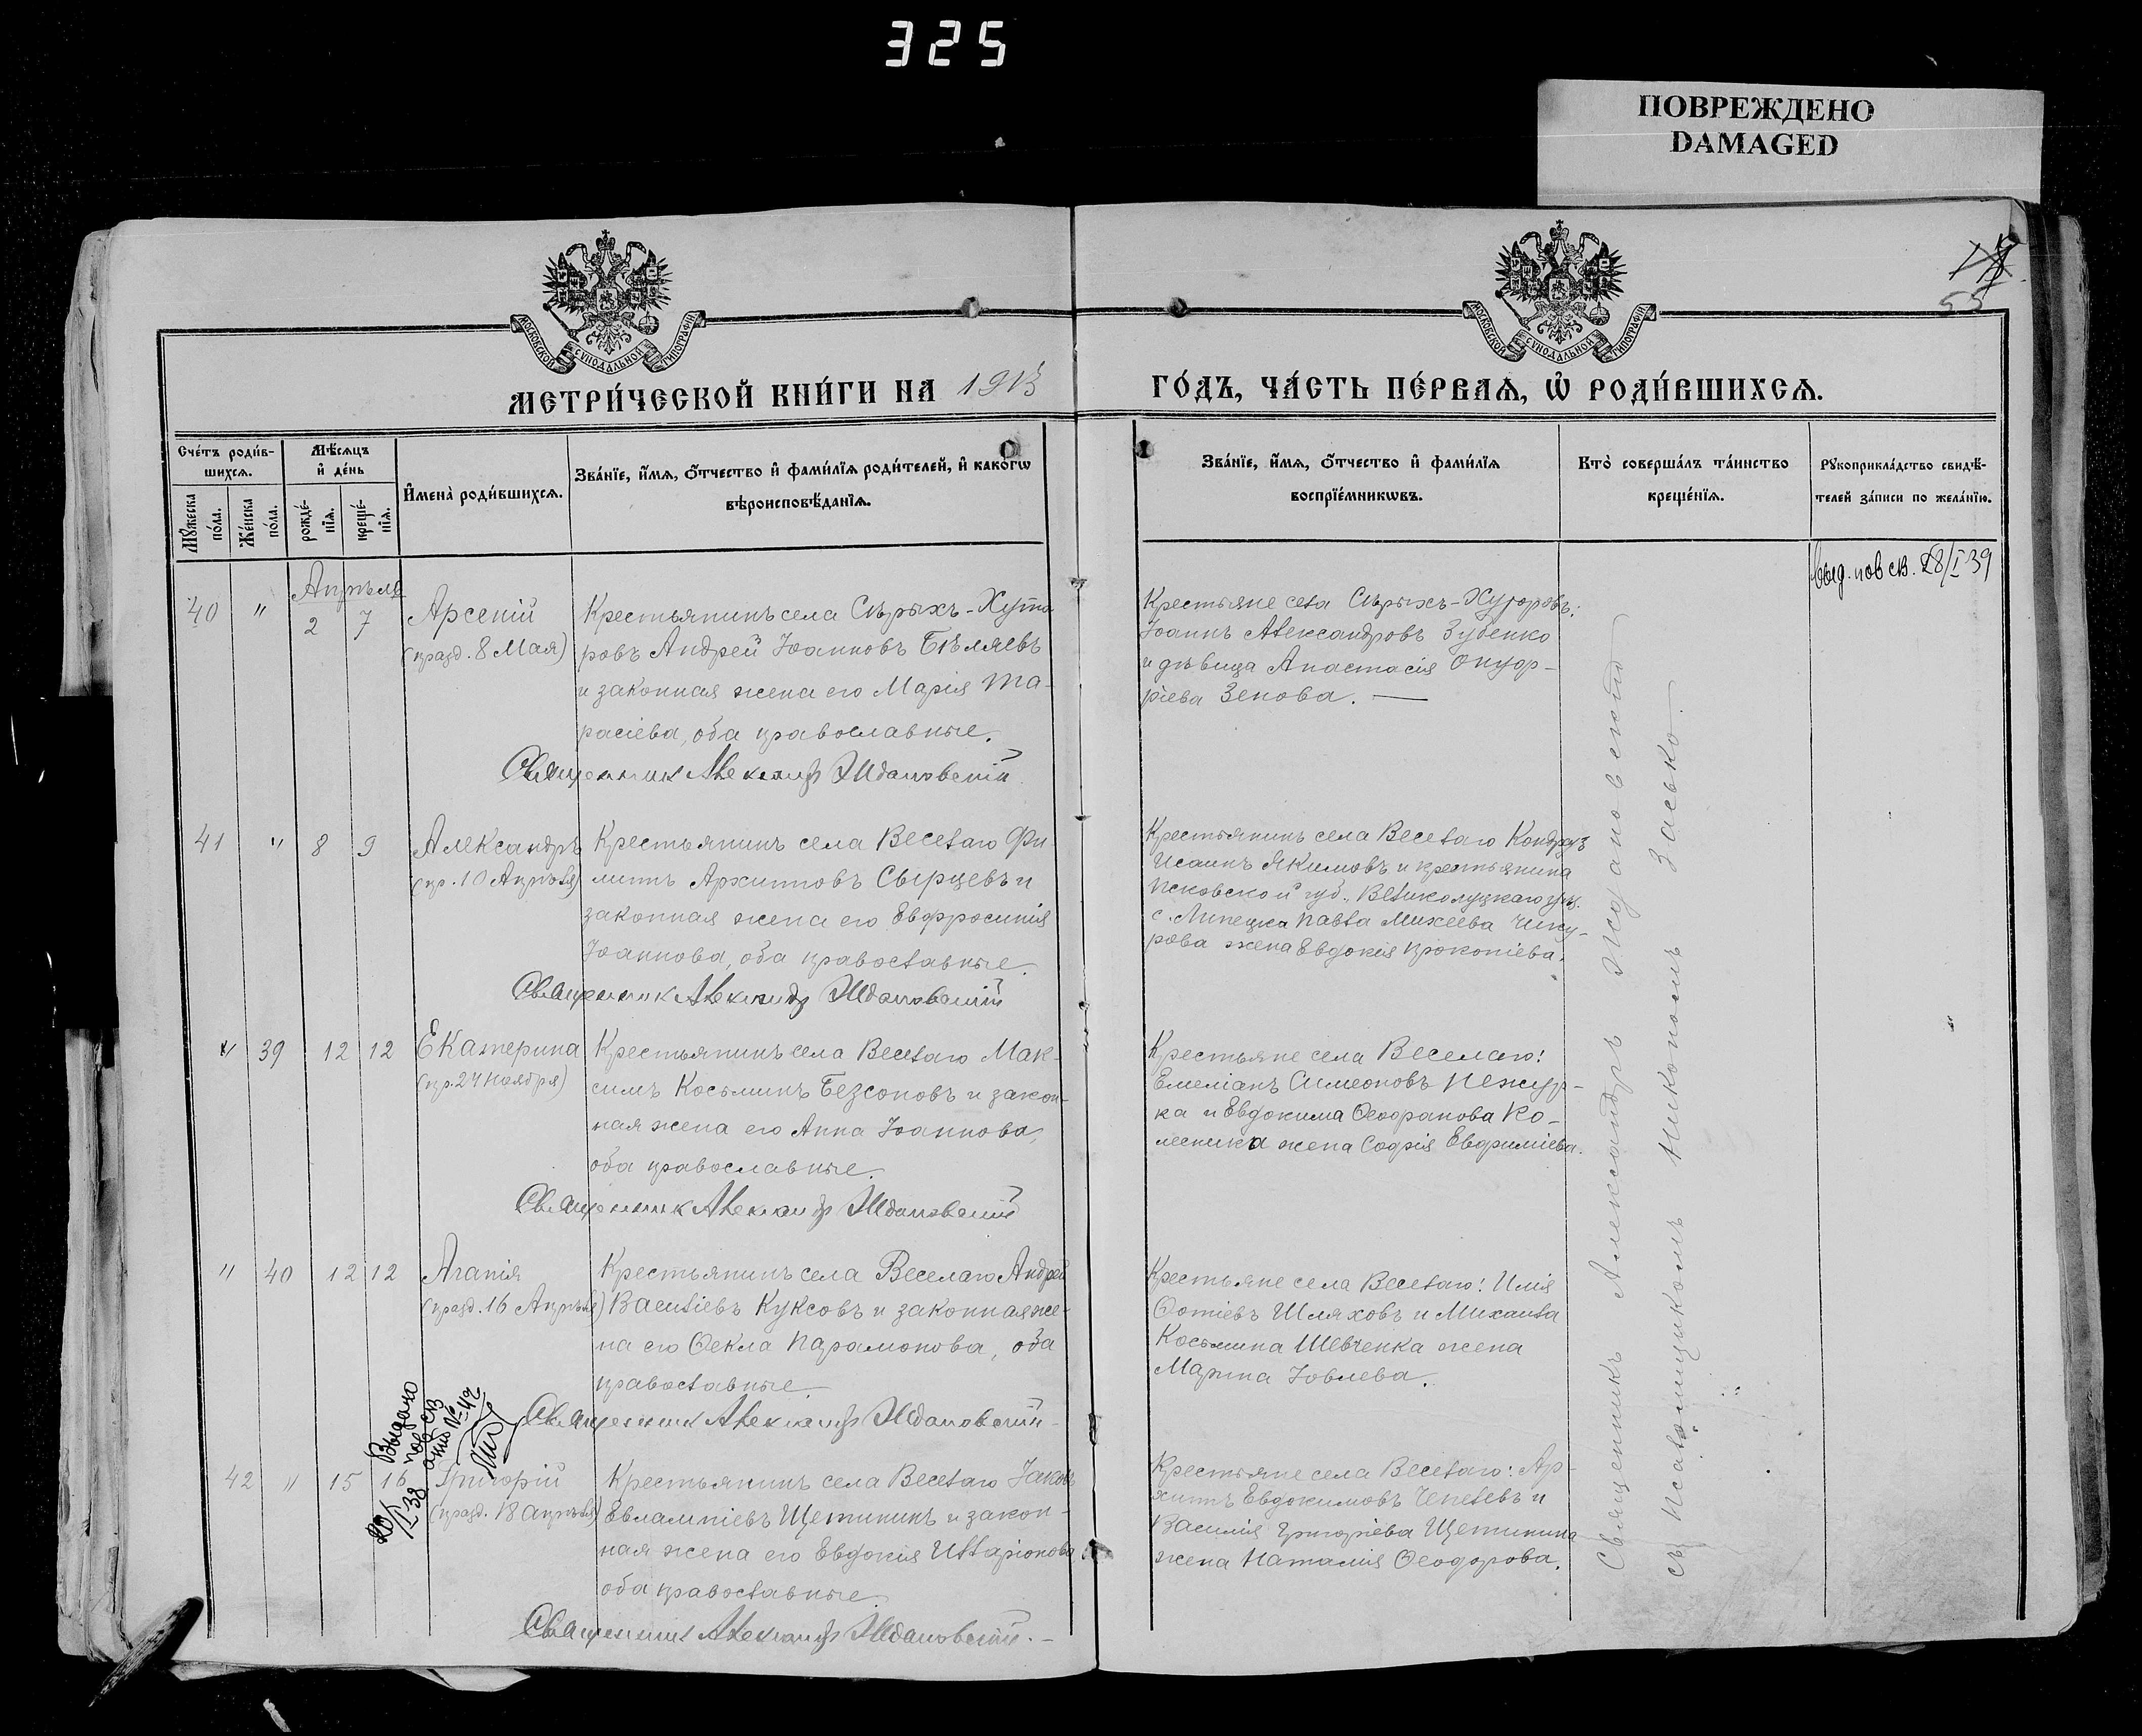 325
ПОВРЕЖДЕНО
DAMAGED
55
МОСКОВСКОЙ СѴНОДАЛЬНОЙ ТИПОГРАФІИ
МОСКОВСКОЙ СѴНОДАЛЬНОЙ ТИПОГРАФІИ
МЕТРИ́ЧЕСКОЙ КНИ́ГИ НА 1913
ГО́ДЪ, ЧА́СТЬ ПЕ́РВАѦ, Ѡ҆ РОДИ́ВШИХСѦ.
Сче́тъ роди́в-
шихсѧ.
Мѣ́сѧцъ
и҆ де́нь
Мꙋ́жеска
по́ла.
Же́нска
по́ла.
рожде́-
нїѧ.
креще́-
нїѧ.
И҆мена̀ роди́вшихсѧ.
Зва́нїе, и҆́мѧ, ѻ҆́тчество и҆ фами́лїѧ роди́телей, и҆ како́гѡ
вѣроисповѣ́данїѧ.
Зва́нїе, и҆́мѧ, ѻ҆́тчество и҆ фами́лїѧ
воспрїе́мникѡвъ.
Кто̀ соверша́лъ та́инство
креще́нїѧ.
Рꙋкоприкла́дство свидѣ́-
телей за́писи по жела́нїю.
выд. пов св. 28/I 39
Апрѣль
40 " 2 7 Арсеній
(празд. 8 Мая)
Крестьянинъ села Сѣрыхъ-Хуто
ровъ Андрей Іоанновъ Бѣляевъ
и законная жена его Марія Та-
расіева, оба православные.
Священник Александр Ждановский
Крестьяне села Сѣрыхъ-Хуторовъ:
Іоаннъ Александровъ Зубенко
и дѣвица Анастасія Онуф-
ріева Зенова. —
41 " 8 9 Александръ
(пр. 10 Апрѣля)
Крестьянинъ села Веселаго Фи
липъ Архиповъ Сырцевъ и
законная жена его Евфросинія
Іоаннова, оба православные.
Священник Александр Ждановский
Крестьянинъ села Веселаго Кондратъ
Исаинъ Якимовъ и крестьянина
Псковской губ., Великолуцкаго уѣз.
с. Липецка Павла Михеева Чику-
рова жена Евдокія Прокопіева.
" 39 12 12 Екатерина
(пр. 24 Ноября)
Крестьянинъ села Веселаго Мак-
симъ Косьминъ Безсоновъ и закон-
ная жена его Анна Іоаннова,
оба православные.
Священник Александр Ждановский
Крестьяне села Веселаго:
Емеліанъ Симеоновъ Нежур-
ка и Евдокима Ѳеофанова Ко-
лесника жена Софія Евфиміева.
" 40 12 12 Агапія
(празд. 16 Апрѣля)
Крестьянинъ села Веселаго Андрей
Василіевъ Куксовъ и законная же-
на его Ѳекла Парамонова, оба
православные.
Священник Александр Ждановский
Крестьяне села Веселаго: Илія
Фотіевъ Шляховъ и Михаила
Косьмина Шевченка жена
Марина Іовлева.
Выдано
пов св
анис № 42
20/II 38
42 " 15 16 Григорій
(празд. 18 апрѣля)
Крестьянинъ села Веселаго Іаковъ
Евлампіевъ Щетининъ и закон-
ная жена его Евдокія Илларіонова
оба православные.
Священник Александр Ждановский.
Крестьяне села Веселаго: Ар-
хипъ Евдокимовъ Чепелевъ и
Василія Григоріева Щетинина
жена Наталія Ѳеодорова.
Священникъ Александръ Ждановскій
съ псаломщикомъ Никономъ Засько